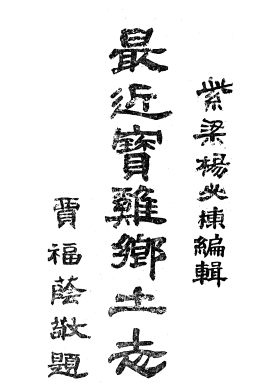 紫梁楊必棟編輯
最近寶雞鄉土志
賈福蔭敬題